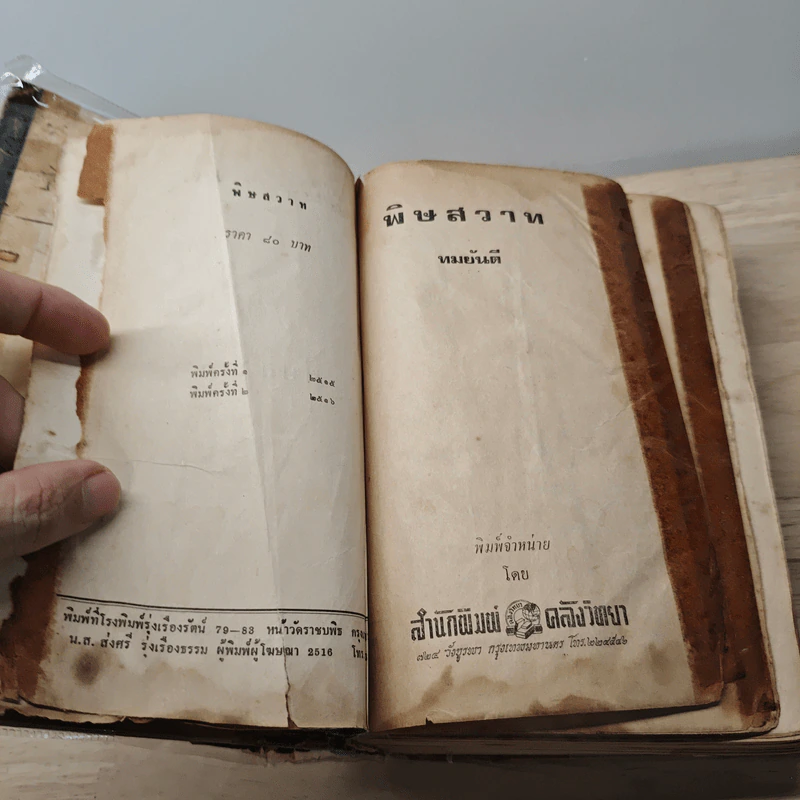 พิษสวาท
ราคา ๘๐ บาท
พิมพ์ครั้งที่ ๑ ๒๕๑๕
พิมพ์ครั้งที่ ๒ ๒๕๑๖
พิมพ์ที่โรงพิมพ์รุ่งเรืองรัตน์ 79—83 หน้าวัดราชบพิธ
น.ส. ส่งศรี รุ่งเรืองธรรม ผู้พิมพ์ผู้โฆษณา 2516
พิษสวาท
ทมยันตี
พิมพ์จำหน่าย
โดย
สำนักพิมพ์ คลังวิทยา
๗๒๔ วังบูรพา กรุงเทพมหานคร โทร.๒๒๔๕๔๖